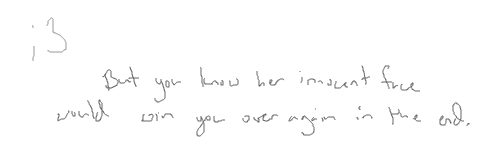 ;3
But you know her innocent face
would win you over again in the end.